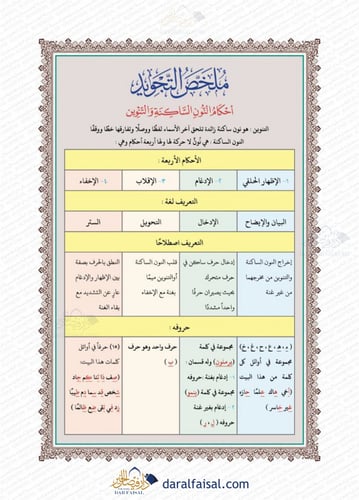 مُلَخَّصُ التَّجْوِيد
أَحْكَامُ النُّونِ السَّاكِنَةِ وَالتَّنْوِين
التنوين : هو نون ساكنة زائدة تلحق آخر الأسماء لفظًا ووصلًا وتفارقها خطًا ووقفًا
النون الساكنة : هي نُونٌ لا حركة لها ولها أربعة أحكام وهي :
الأحكام الأربعة :
١- الإظهار الحلقي
٢- الإدغام
٣- الإقلاب
٤- الإخفاء
التعريف لغة :
البيان والإيضاح
الإدخال
التحويل
الستر
التعريف اصطلاحًا
إخراج النون الساكنة
والتنوين من مخرجهما
من غير غنة
إدخال حرف ساكن في
حرف متحرك
بحيث يصيران حرفًا
واحدًا مشددًا
قلب النون الساكنة
أو التنوين ميمًا
بغنة مع الإخفاء
النطق بالحرف بصفة
بين الإظهار والإدغام
عارٍ عن التشديد مع
بقاء الغنة
حروفه :
(ء، هـ، ع، ح، غ، خ)
مجموعة في أوائل كل
كلمة من هذا البيت
(أخي هاك علمًا حازه
غير خاسر)
مجموعة في كلمة
(يرملون) وله قسمان :
١- إدغام بغنة :حروفه
مجموعة في كلمة (ينمو)
٢- إدغام بغير غنة
حروفه (ل، ر)
حرف واحد وهو حرف
(ب)
(١٥) حرفًا في أوائل
كلمات هذا البيت:
صف ذا ثنا كم جاد
شخص قد سما دم طيبًا
زد في تقى ضع ظالمًا
دار فيصل
DARALFAISAL
daralfaisal.com